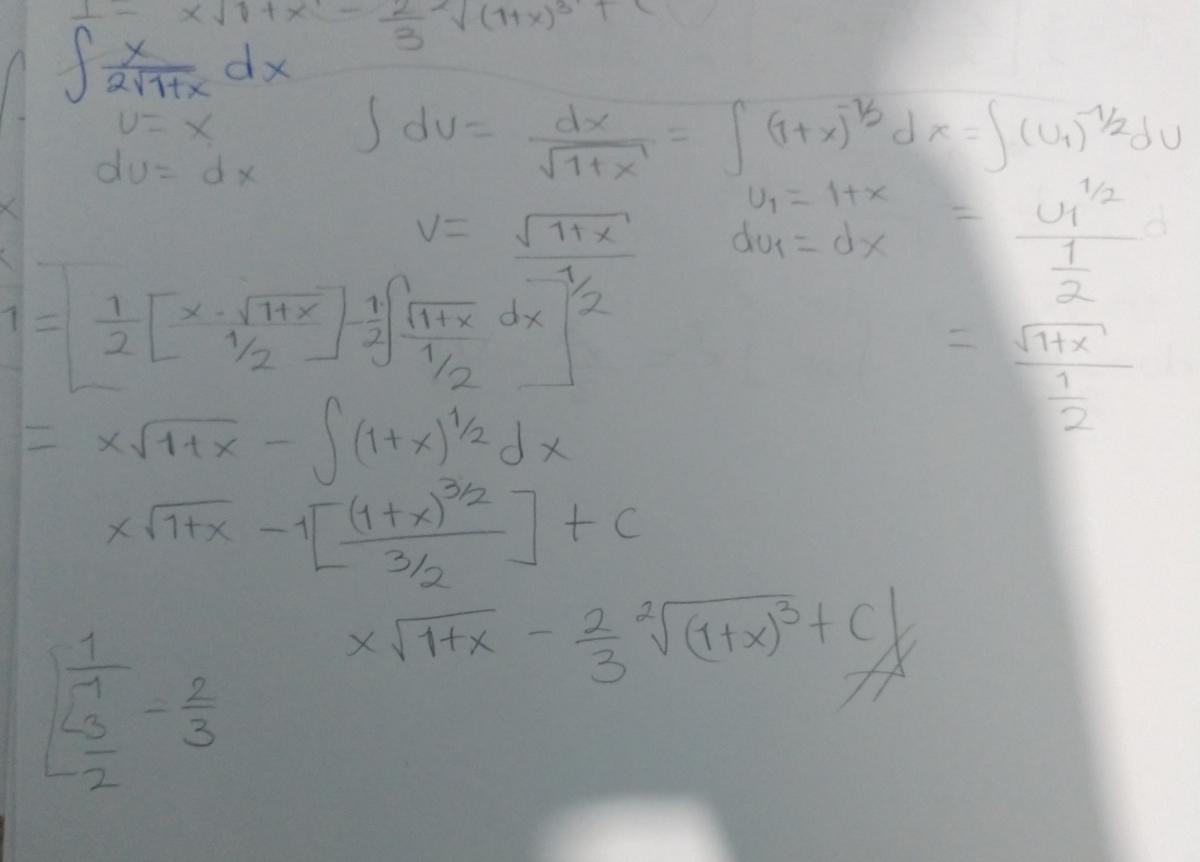 x√1+x - 2/3 ²√(1+x)³ + C
∫ x/2√1+x dx
u = x
du = dx
∫ dv = dx/√1+x = ∫ (1+x)^-1/2 dx = ∫ (u₁)^-1/2 du
u₁ = 1+x
du₁ = dx
= u₁^1/2 / 1/2
= √1+x / 1/2
v = √1+x / 1/2
1 = [ 1/2 [ x · √1+x / 1/2 ] - 1/2 ∫ √1+x / 1/2 dx ]
= x√1+x - ∫ (1+x)^1/2 dx
x√1+x - 1 [ (1+x)^3/2 / 3/2 ] + C
x√1+x - 2/3 ²√(1+x)³ + C
1/1 / 3/2 = 2/3